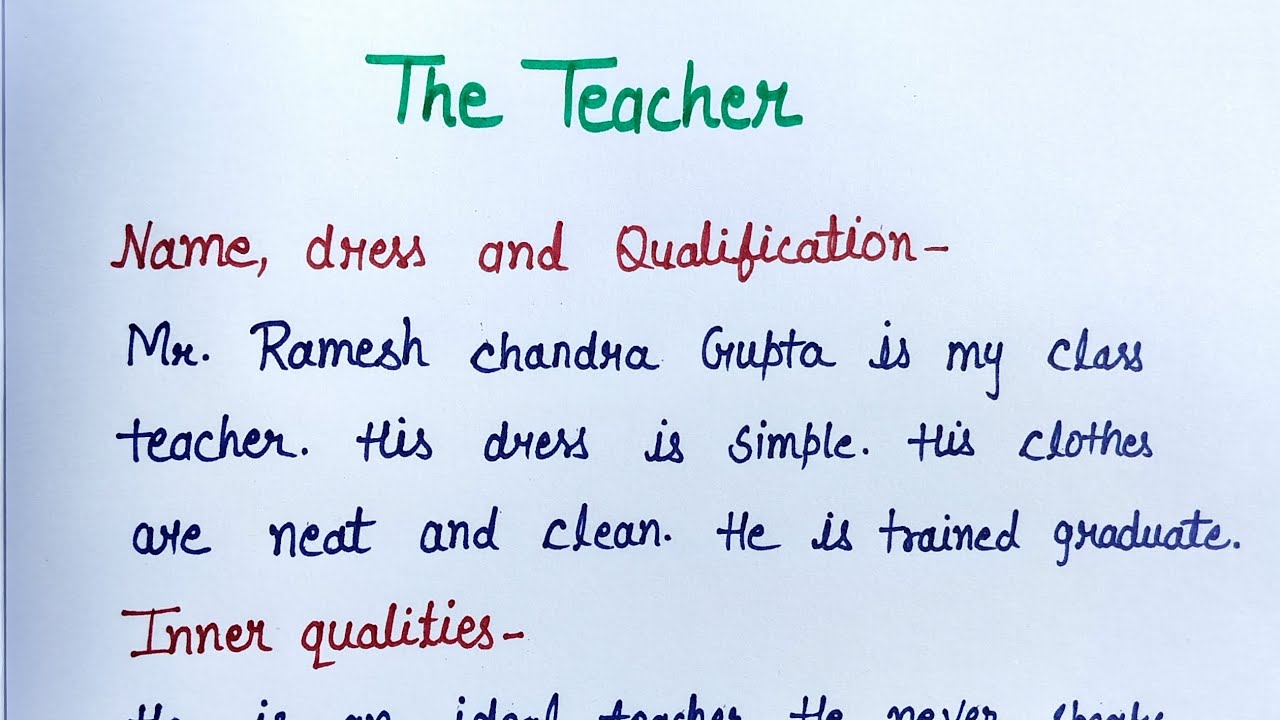 The Teacher
Name, dress and Qualification-
Mr. Ramesh chandra Gupta is my class
teacher. His dress is simple. His clothes
are neat and clean. He is trained graduate.
Inner qualities-
He is an ideal teacher He never